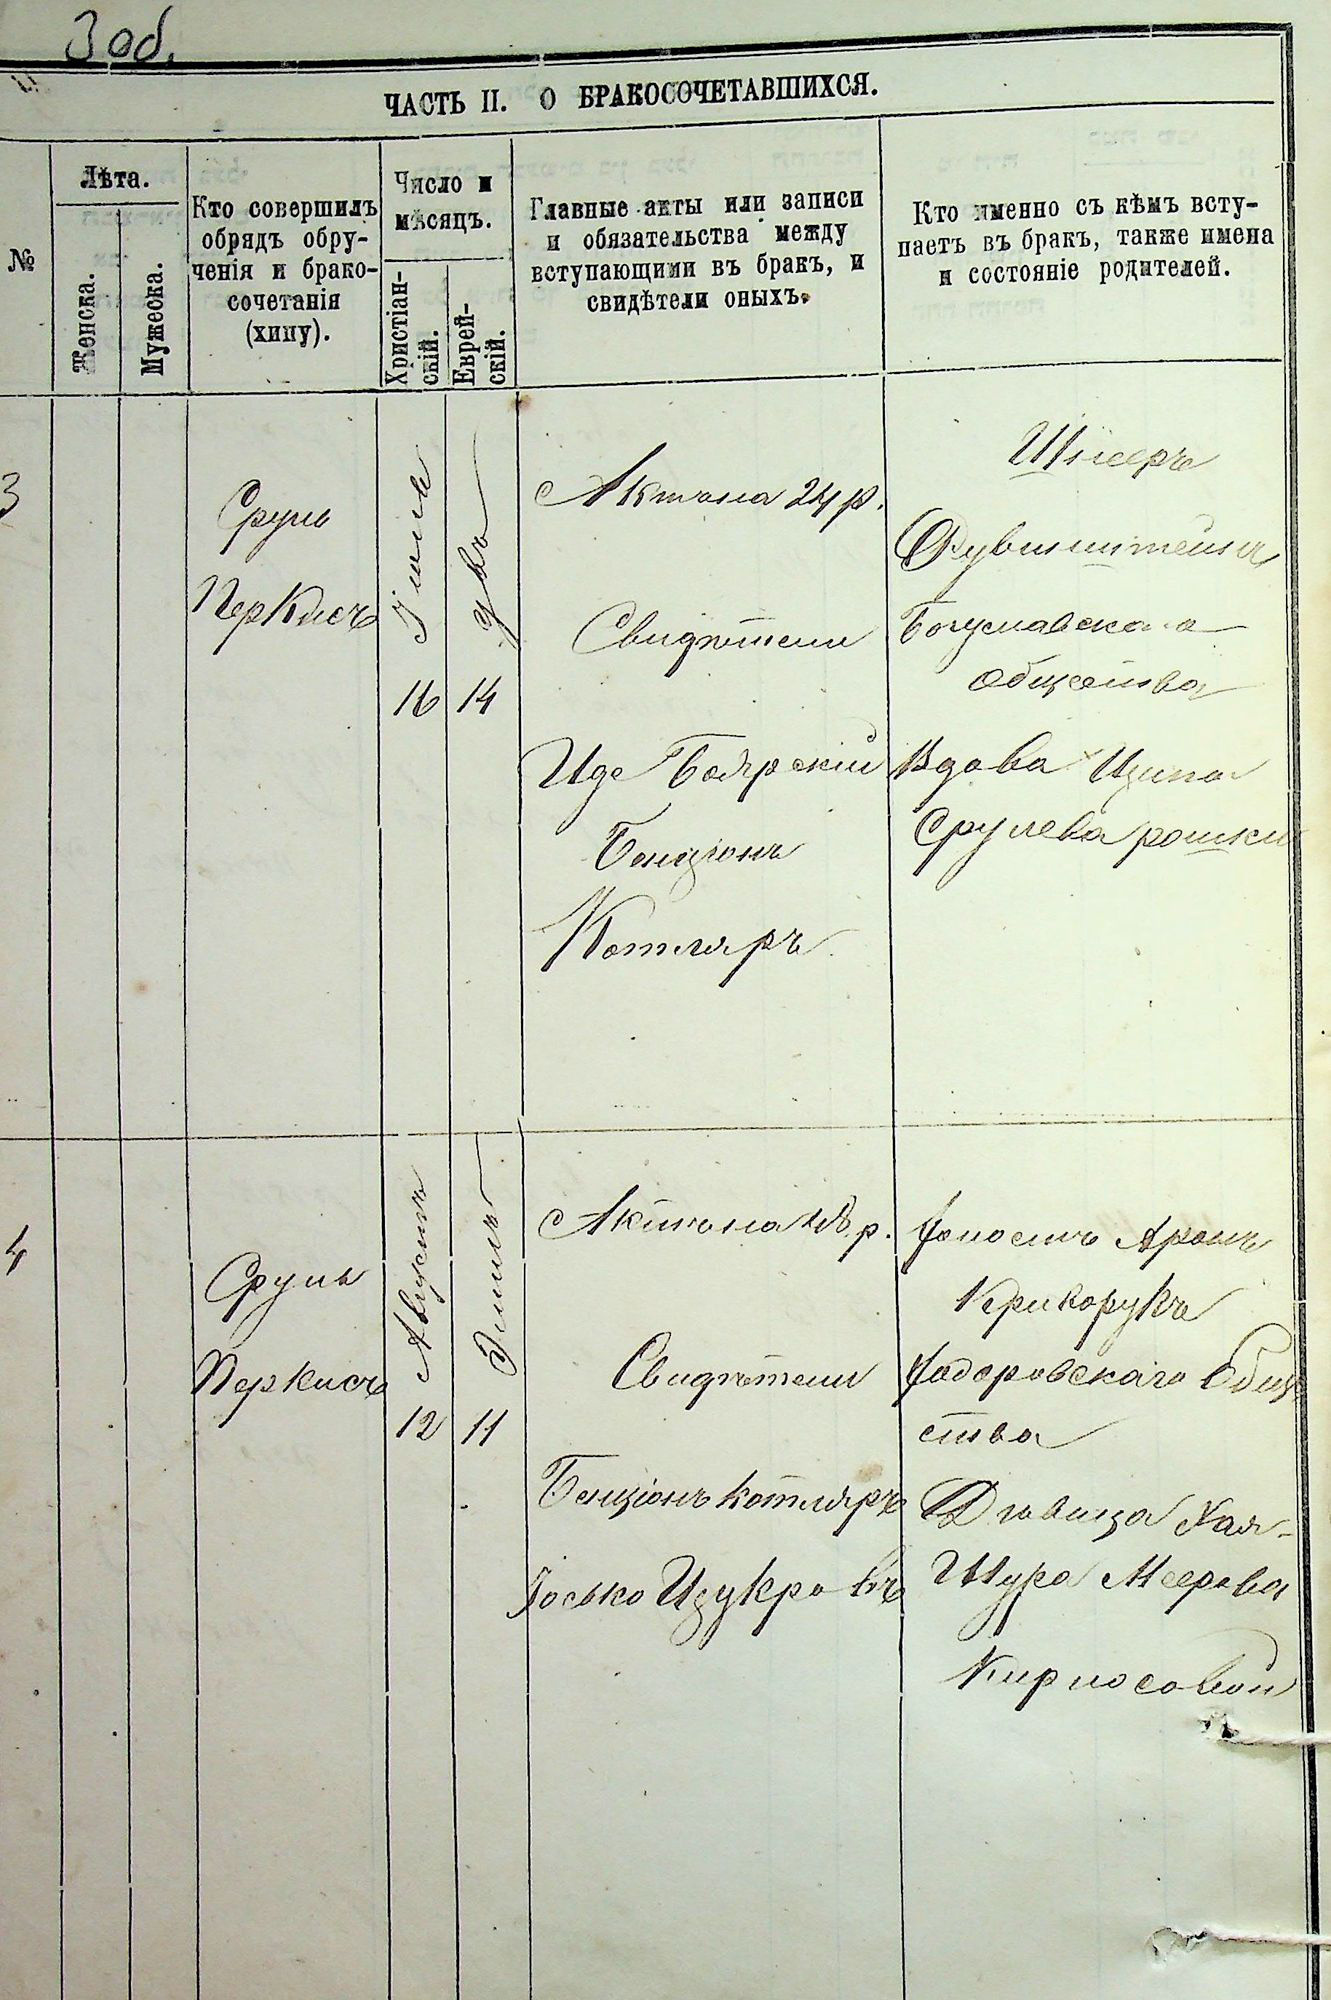 3 об.
ЧАСТЬ II. О БРАКОСОЧЕТАВШИХСЯ.
№
Лѣта.
Женска.
Мужеска.
Кто совершилъ
обрядъ обру-
ченія и брако-
сочетанія
(хипу).
Число и
мѣсяцъ.
Христіан-
скій.
Еврей-
скій.
Главные акты или записи
и обязательства между
вступающими въ бракъ, и
свидѣтели оныхъ.
Кто именно съ кѣмъ всту-
паетъ въ бракъ, также имена
и состояніе родителей.
3
Сруль
Перкисъ
16
14
Актъ на 24 р.
Свидѣтели
Иде Боярскій
Бенціонъ
Котляръ
Богуславскаго
общества
Вдова Ципа
Срулева
4
Сруль
Перкисъ
Августъ
12
Элилъ
11
Актъ на 48 р.
Свидѣтели
Бенціонъ Котляръ
Іосько Цукровъ
Аронъ
Криворукъ
Ѳедоровскаго Общ
ства
Дѣвица Хая-
Шура Меерова